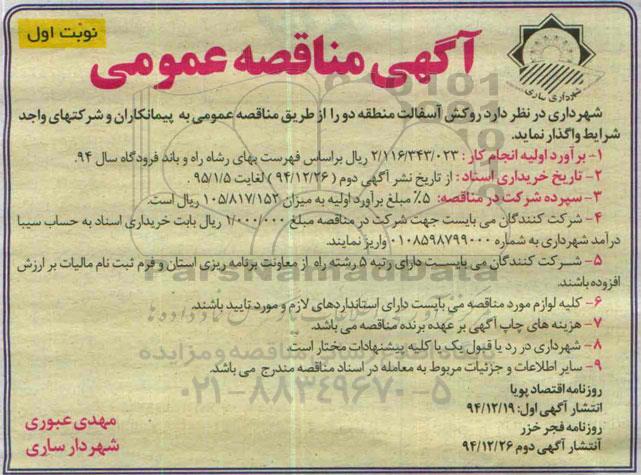 نوبت اول
آگهی مناقصه عمومی
شهرداری ساری
شهرداری در نظر دارد روکش آسفالت منطقه دو را از طریق مناقصه عمومی به پیمانکاران و شرکتهای واجد
شرایط واگذار نماید.
۱- برآورد اولیه انجام کار: ۲/۱۱۶/۳۴۳/۰۲۳ ریال براساس فهرست بهای رشته راه و باند فرودگاه سال ۹۴.
۲- تاریخ خریداری اسناد: از تاریخ نشر آگهی دوم (۹۴/۱۲/۲۶) لغایت ۹۵/۱/۵.
۳- سپرده شرکت در مناقصه: ۵٪ مبلغ برآورد اولیه به میزان ۱۰۵/۸۱۷/۱۵۲ ریال است.
۴- شرکت کنندگان می بایست جهت شرکت در مناقصه مبلغ ۱/۰۰۰/۰۰۰ ریال بابت خریداری اسناد به حساب سیبا
درآمد شهرداری به شماره ۰۱۰۸۵۹۸۷۹۹۰۰۰ واریز نمایند.
۵- شرکت کنندگان می بایست دارای رتبه ۵ رشته راه از معاونت برنامه ریزی استان و فرم ثبت نام مالیات بر ارزش
افزوده باشند.
۶- کلیه لوازم مورد مناقصه می بایست دارای استانداردهای لازم و مورد تایید باشند.
۷- هزینه های چاپ آگهی بر عهده برنده مناقصه می باشد.
۸- شهرداری در رد یا قبول یک یا کلیه پیشنهادات مختار است.
۹- سایر اطلاعات و جزئیات مربوط به معامله در اسناد مناقصه مندرج می باشد.
روزنامه اقتصاد پویا
انتشار آگهی اول: ۹۴/۱۲/۱۹
روزنامه فجر خزر
انتشار آگهی دوم ۹۴/۱۲/۲۶
مهدی عبوری
شهردار ساری
ParsNamadData
۰۲۱-۸۸۳۴۹۶۷۰-۵